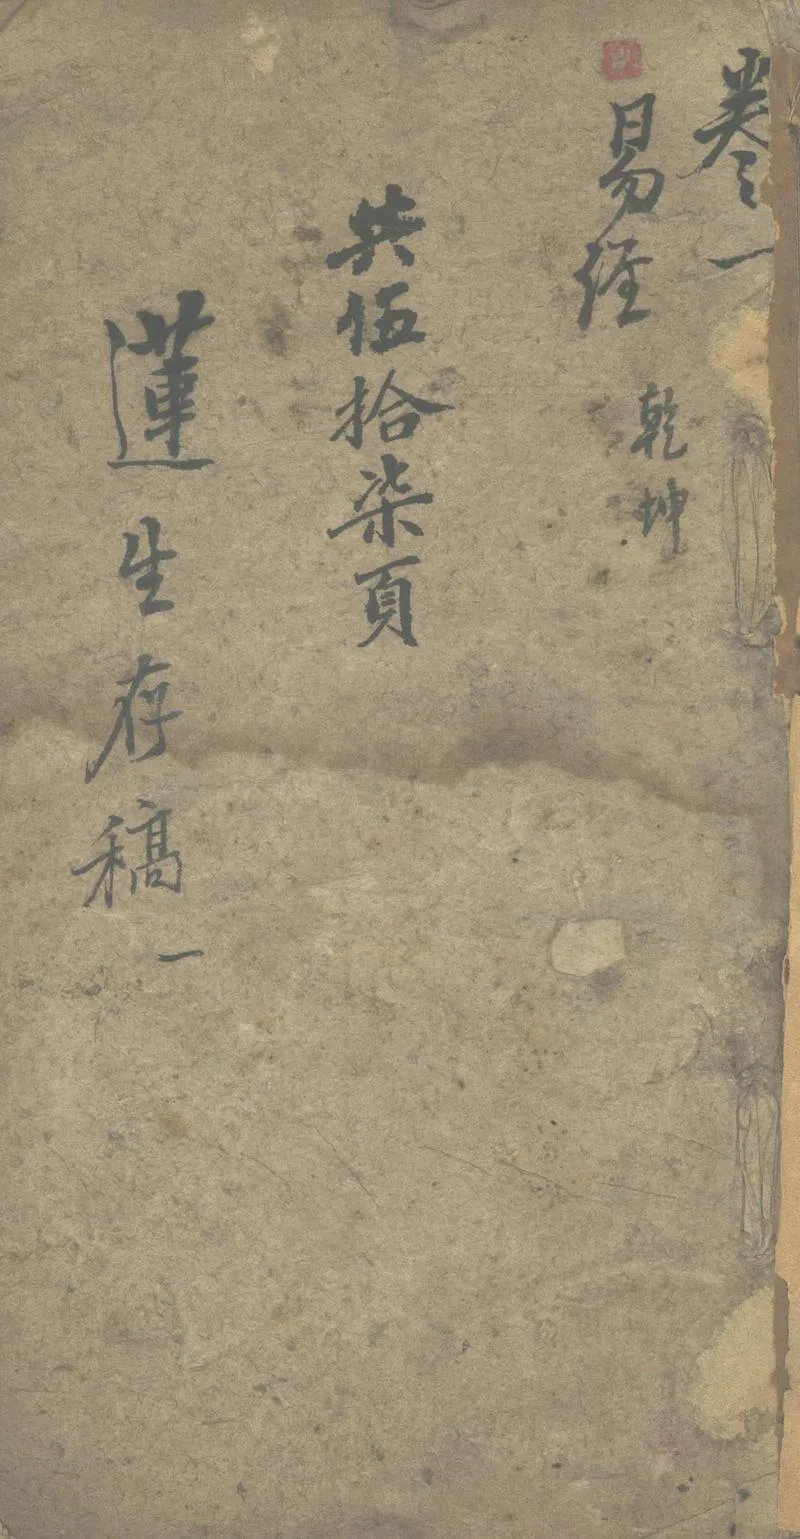 卷一
易經 乾坤
共伍拾柒頁
蓮生存稿 一